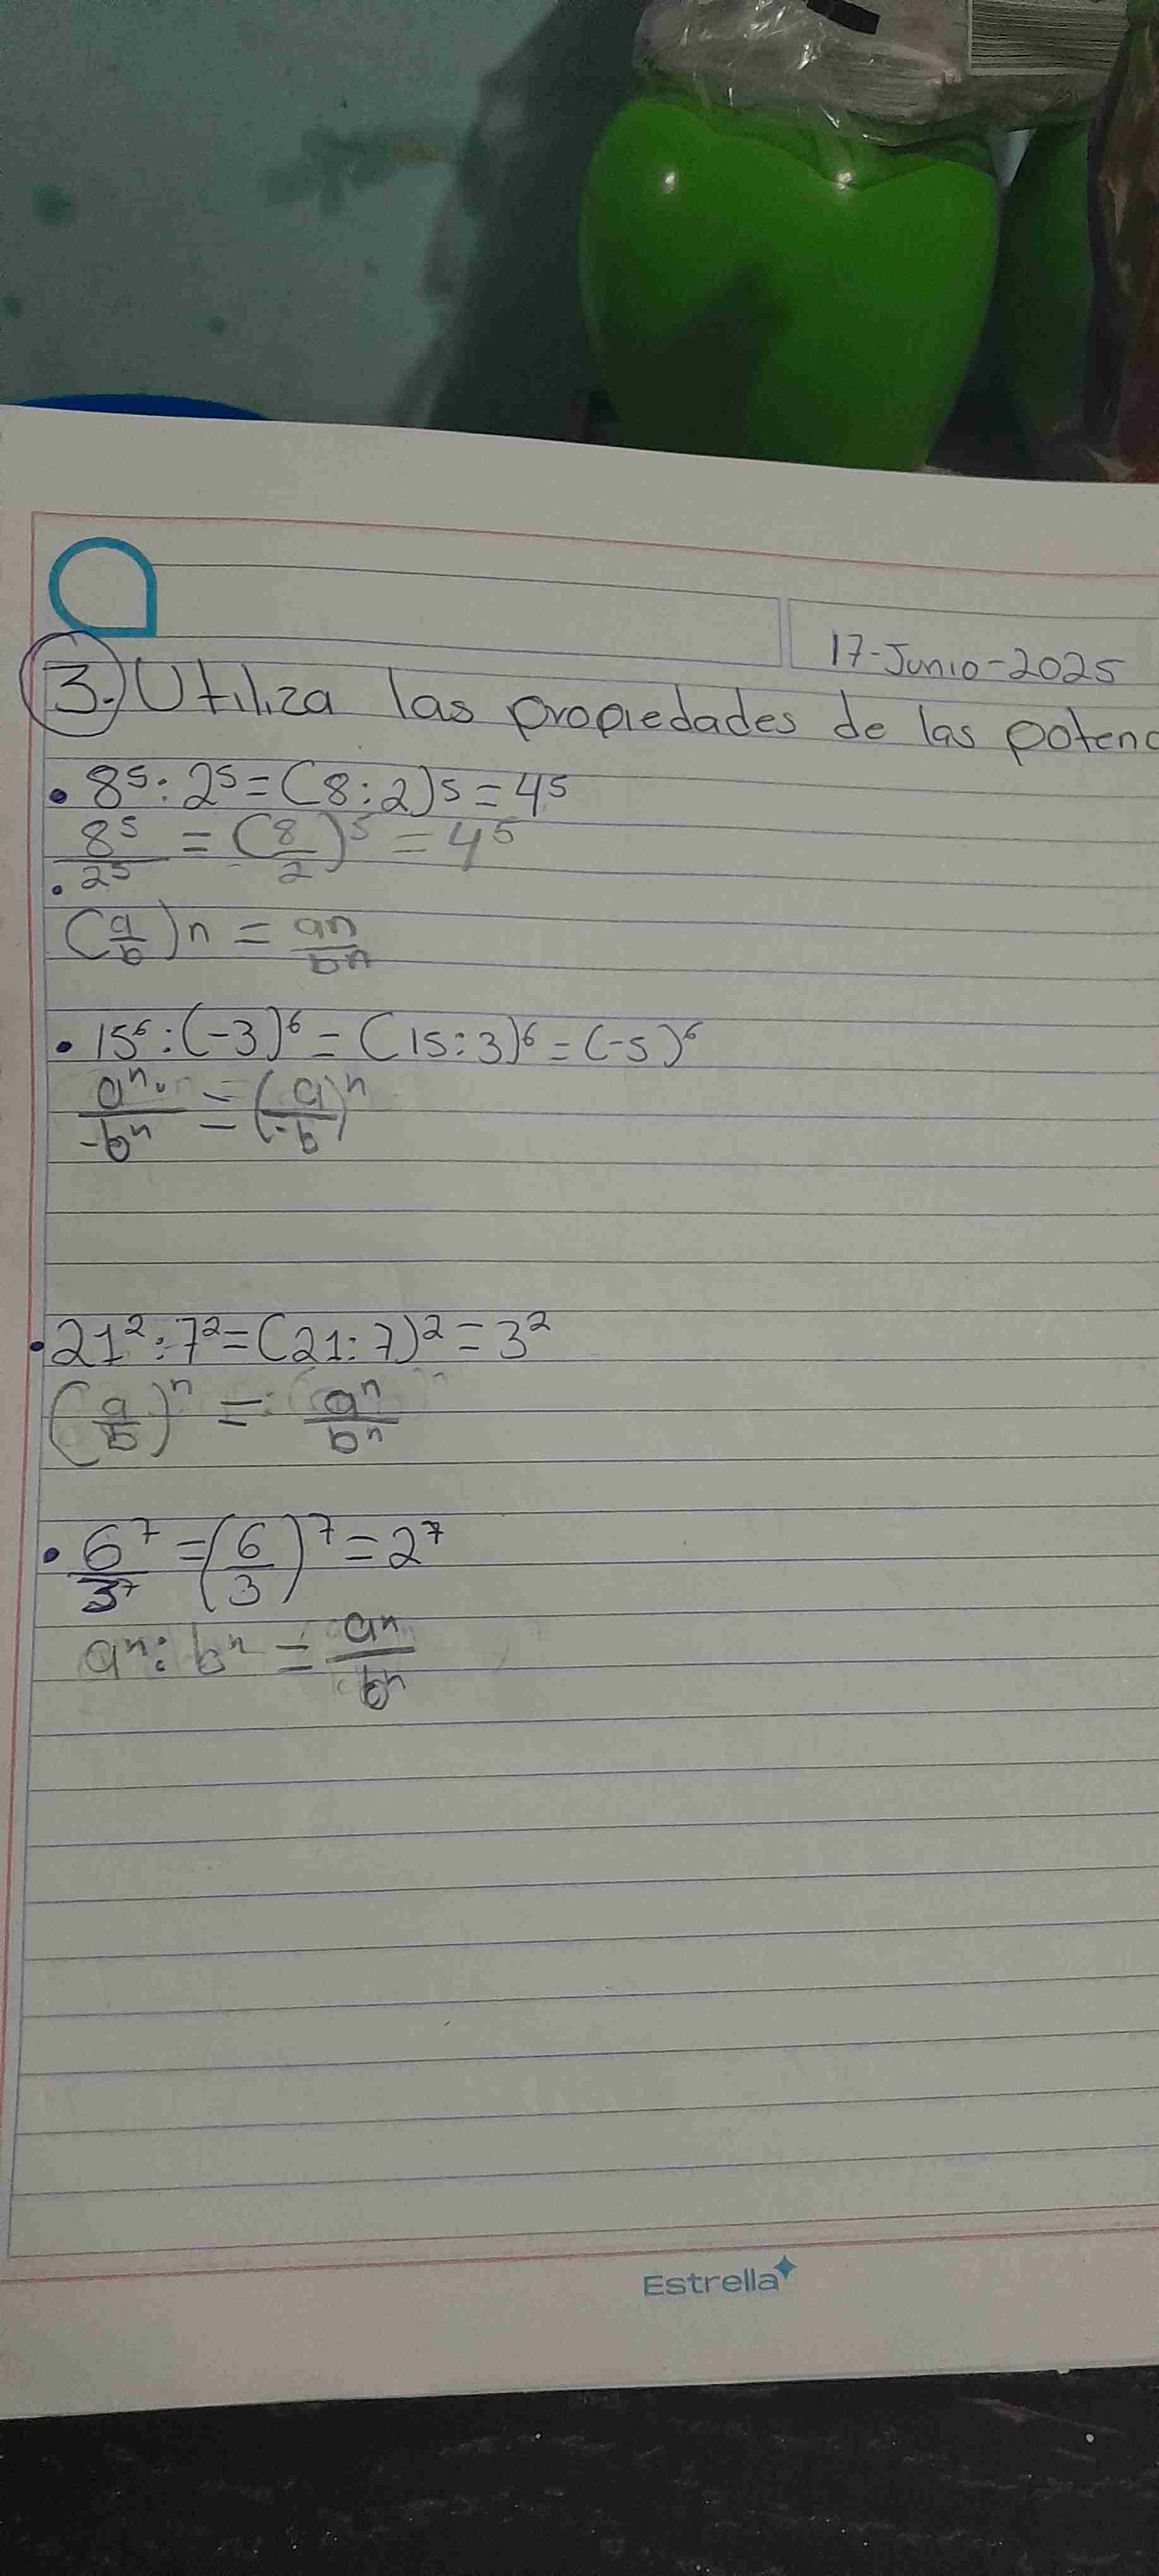 17-Junio-2025
3. Utiliza las propiedades de las potenc
• 8⁵:2⁵=(8:2)5=4⁵
8⁵/2⁵ = (8/2)⁵ = 4⁵
(a/b)n = an/bn
• 15⁶:(-3)⁶=(15:3)⁶=(-5)⁶
aⁿ/-bⁿ = (a/-b)ⁿ
• 21²:7²=(21:7)²=3²
(a/b)ⁿ = aⁿ/bⁿ
• 6⁷/3⁷ =(6/3)⁷=2⁷
aⁿ:bⁿ = aⁿ/bⁿ
Estrella